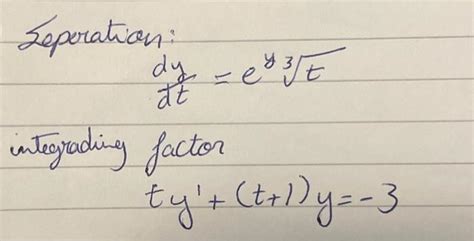 Seperation:
dy/dt = e^y ∛t
integrading factor
ty' + (t+1)y = -3